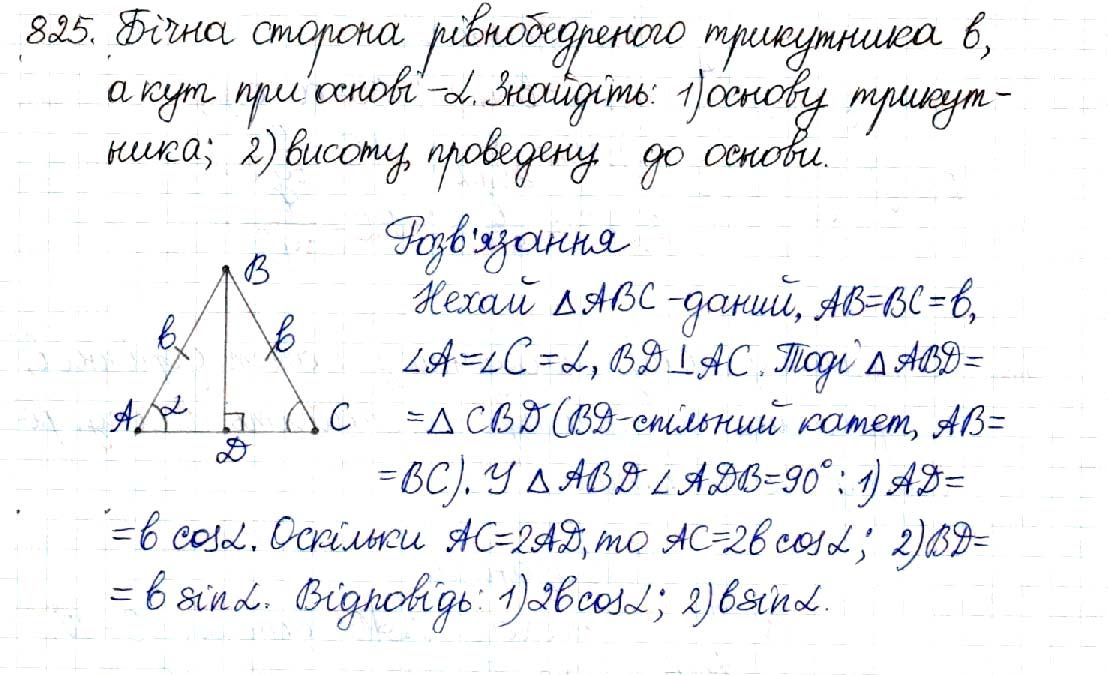 825. Бічна сторона рівнобедреного трикутника b,
а кут при основі - α. Знайдіть: 1) основу трикут-
ника; 2) висоту, проведену до основи.
Розв'язання
B
Нехай △ABC - даний, AB=BC=b,
b b
∠A=∠C=α, BD⊥AC. Тоді △ABD=
A α C
=△CBD (BD-спільний катет, AB=
D
=BC). У △ABD ∠ADB=90°: 1) AD=
=b cosα. Оскільки AC=2AD, то AC=2b cosα; 2) BD=
=b sinα. Відповідь: 1) 2b cosα; 2) b sinα.